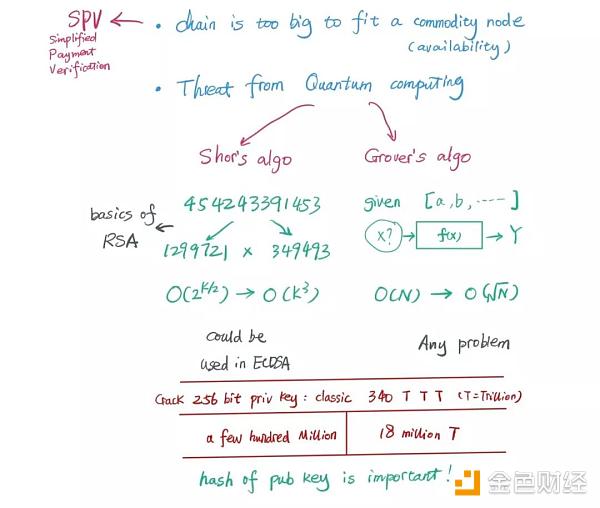 SPV ← • chain is too big to fit a commodity node
Simplified
Payment
Verification
(availability)
• Threat from Quantum computing
Shor's algo
Grover's algo
454243391453
given [a, b, ----]
basics of
RSA
1299721 x 349493
x? → f(x) → Y
O(2^{k/2}) → O(k^3)
O(N) → O(√N)
could be
used in ECDSA
Any problem
Crack 256 bit priv key : classic 340 T T T (T=Trillion)
a few hundred Million
18 million T
hash of pub key is important !
金色财经